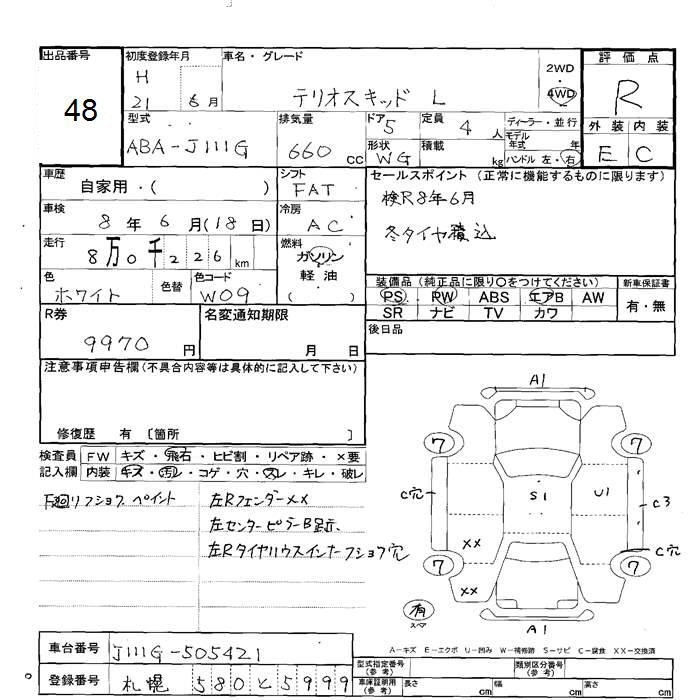 出品番号 48
初度登録年月 H 21 6月
車名・グレード テリオスキッド L
2WD・4WD
評価点 R
型式 ABA-J111G
排気量 660 cc
ドア 5
定員 4人
ディーラー・並行
モデル年式 年
形状 WG
積載 kg
ハンドル 左・右
外装 E
内装 C
車歴 自家用・( )
シフト FAT
セールスポイント (正常に機能するものに限ります)
検R8年6月
冬タイヤ積込
車検 8年 6月(18日)
冷房 AC
走行 8万0千226km
燃料 ガソリン 軽油 ( )
色 ホワイト
色替
色コード W09
装備品 (純正品に限り○をつけてください)
新車保証書
PS RW ABS エアB AW
有・無
SR ナビ TV カワ
R券 9970円
名変通知期限 月 日
後日品
注意事項申告欄(不具合内容等は具体的に記入して下さい)
修復歴 有 〔箇所 〕
検査員記入欄
FW キズ・飛石・ヒビ割・リペア跡・×要
内装 キズ・汚レ・コゲ・穴・スレ・キレ・破レ
下廻リフショク、ペイント
左RフェンダーXX
左センターピラーB跡
左Rタイヤハウスインナーフショク穴
A1
7
7
C穴
S1
U1
C3
XX
C穴
7
7
XX
有
スペア
A1
A-キズ E-エクボ U-凹み W-補修跡 S-サビ C-腐食 XX-交換済
車台番号 J111G-505421
型式指定番号 (参考)
類別区分番号 (参考)
登録番号 札幌 580 と 5999
車庫証明用 (参考)
長さ cm
幅 cm
高さ cm